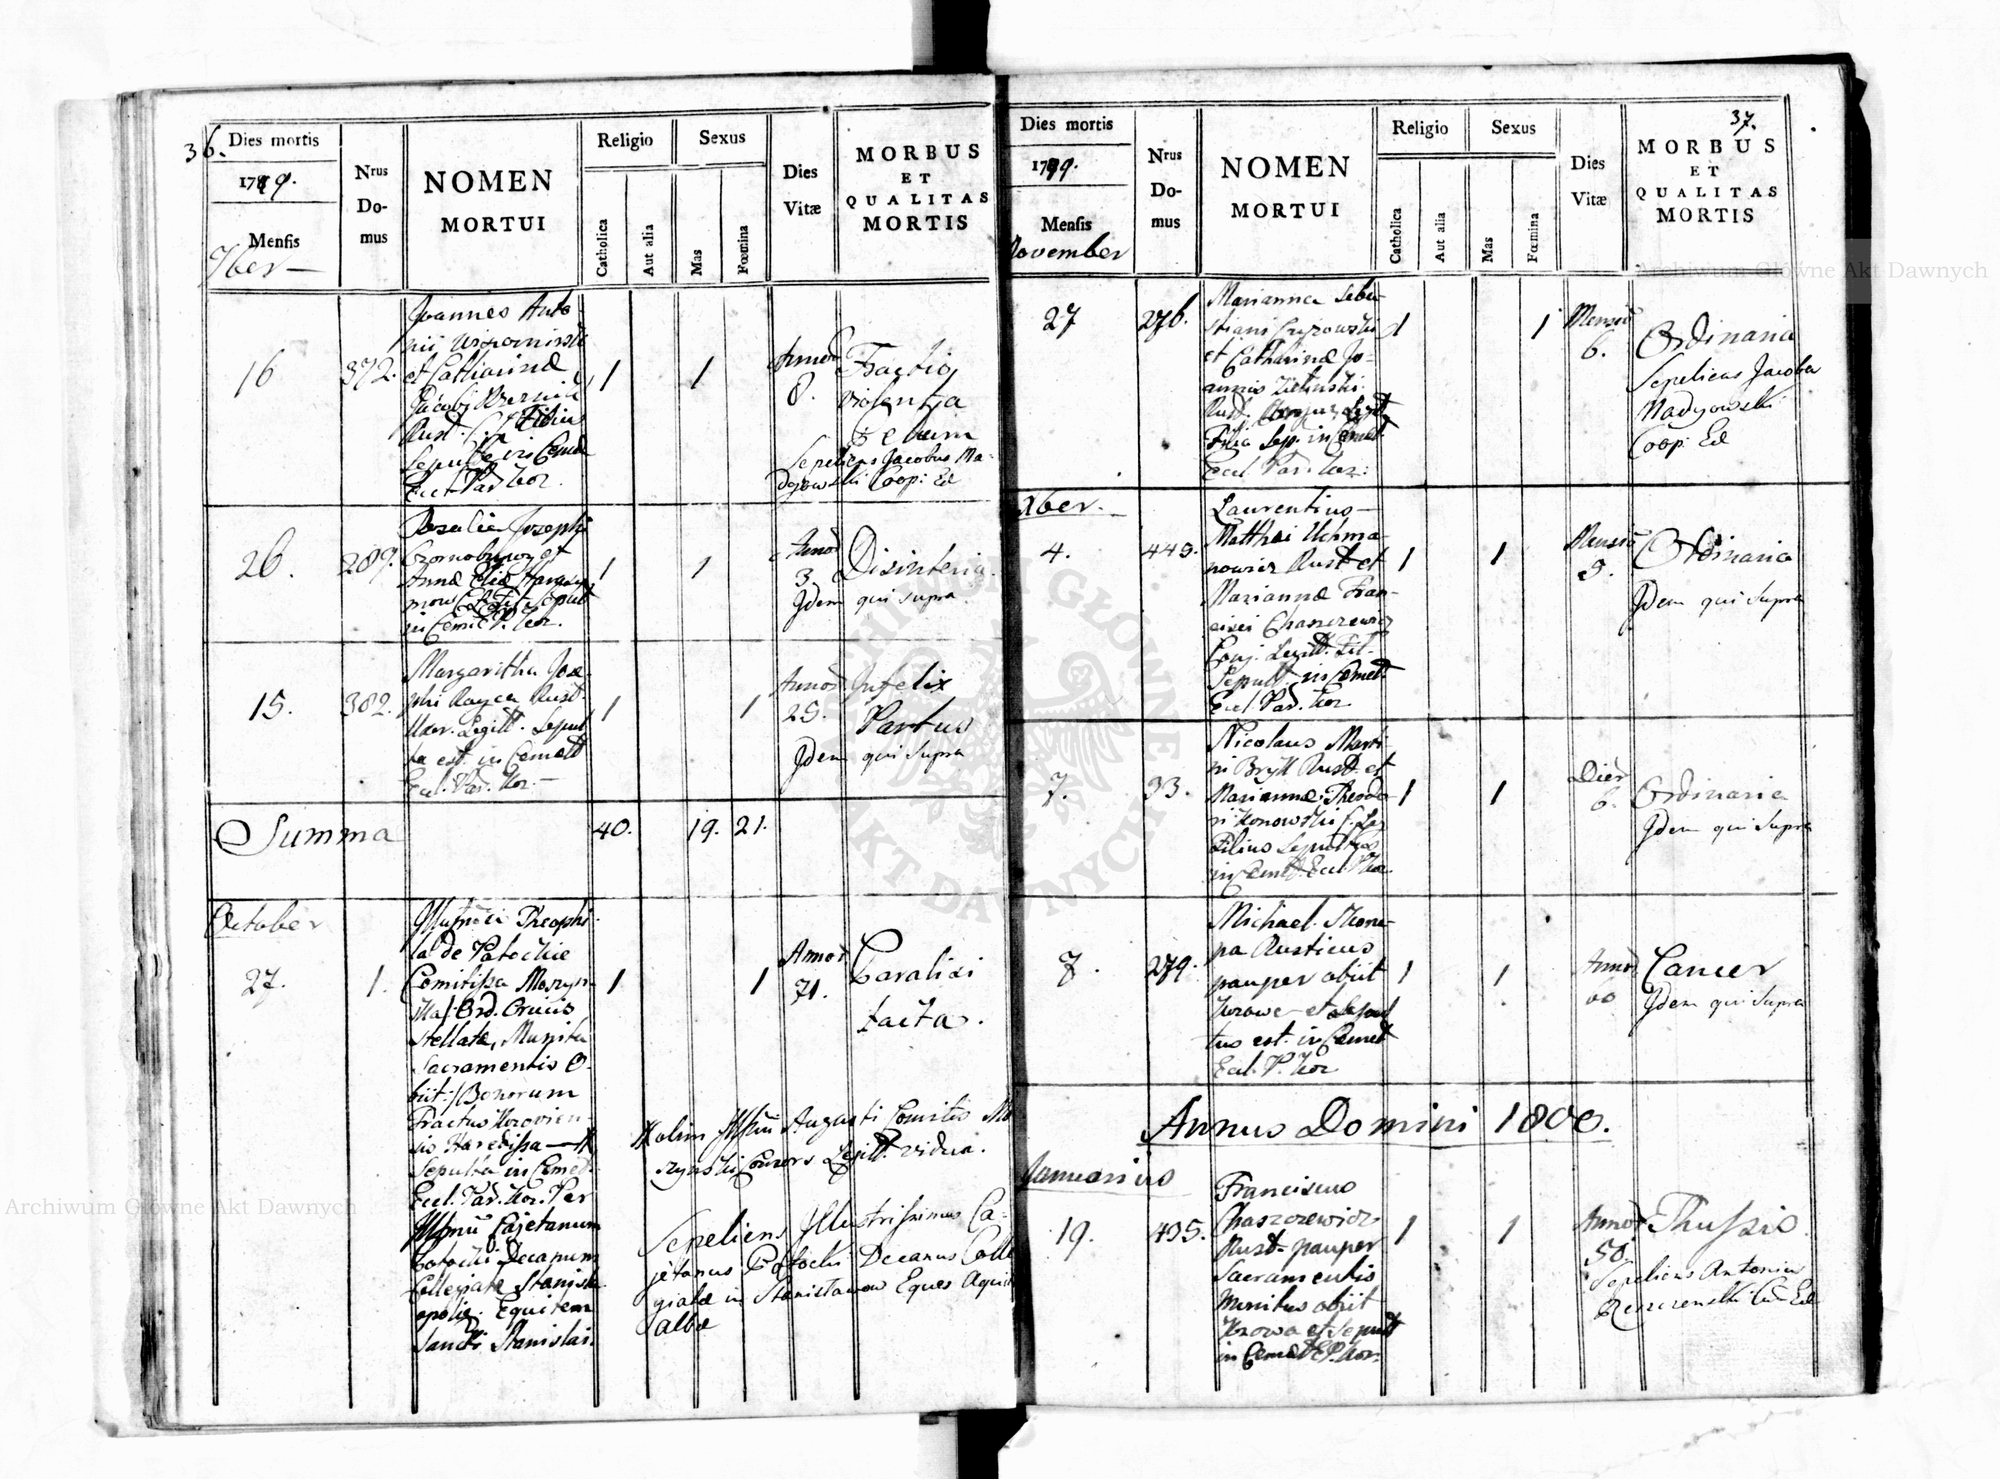 36.
Dies mortis
1799.
Mensis
7ber
Nrus
Do-
mus
NOMEN
MORTUI
Religio
Catholica
Aut alia
Sexus
Mas
Fœmina
Dies
Vitæ
MORBUS
ET
QUALITAS
MORTIS
16
372.
Joannes Anto
nii
et Catharinæ
Jacobi
Rust.
Filius
in Cemet
Eccl. Par. Kor.
1
1
Annor
8.
Fractio
violenta
Sepeliens Jacobus Ma-
dejowski Coop: Ed
26.
289.
Rosalia Josephi
et
Annæ Eliæ
in Cemet P. Kor.
1
1
Annor
3.
Disinteria.
Idem qui supra
15.
382.
Margaritha Jose
phi Rust
Uxor. Legitt. Sepul
ta est in Cemett
Eccl. Par. Kor.—
1
1
Annor
25.
Infelix
Partus
Idem qui supra
Summa
40.
19.
21.
October
27.
1.
Theophi
la de Potockie
Comitissa Moszyn-
ska Ord. Crucis
Stellatæ, Munita
Sacramentis O-
biit Bonorum
Tractus Korovien-
sis Hæredissa
Sepulta in Cemet.
Eccl. Par. Kor. Per
Cajetanum
Potocki Decanum
Collegiatæ Stanisla-
opolis. Equitem
Sancti Stanislai.
1
1
Annor
71.
Paralisi
tacta.
olim Augusti Comitis Mo
szynski Consors Legitt. vidua.
Sepeliens Illustrissimus Ca-
jetanus Potocki Decanus Colle
giatæ in Stanislawow Eques Aquil
albæ
37.
Dies mortis
1799.
Mensis
November
Nrus
Do-
mus
NOMEN
MORTUI
Religio
Catholica
Aut alia
Sexus
Mas
Fœmina
Dies
Vitæ
MORBUS
ET
QUALITAS
MORTIS
27
276.
Marianna Seba-
stiani
et Catharinæ Jo-
annis Zielinski
Rust. Legit
Filia Sep. in Cemet.
Eccl. Par. Kor.
1
1
Mensiu
6.
Ordinaria
Sepeliens Jacobus
Madyowski
Coop: Ed
Xber.
4.
449.
Laurentius
Matthæi Uchma-
nowicz Rust et
Mariannæ Fran-
cisci Chaszczewicz
Conj. Legitt. Fil-
Sepult. in Cemet
Eccl. Par. Kor.
1
1
Mensiu
9.
Ordinaria
Idem qui supra
7.
33.
Nicolaus Marti-
ni Bryll Rust. et
Mariannæ Theodo
ri Konowski
Filius Sepultus
in Cemet. Eccl. P. Kor
1
1
Dier
6.
Ordinaria
Idem qui supra
8.
279.
Michael
pa Rusticus
pauper obiit
Korowe et Sepul
tus est in Cemet
Eccl. P. Kor
1
1
Annor
60
Cancer
Idem qui supra
Annus Domini 1800.
Januarius
19.
435.
Franciscus
Chaszczewicz
Rust. pauper
Sacramentis
Munitus obiit
Korowa et Sepult
in Cemet E P. Kor.
1
1
Annor
50.
Thussis
Sepeliens Antonius
Archiwum Główne Akt Dawnych
Archiwum Główne Akt Dawnych
ARCHIWUM GŁÓWNE AKT DAWNYCH